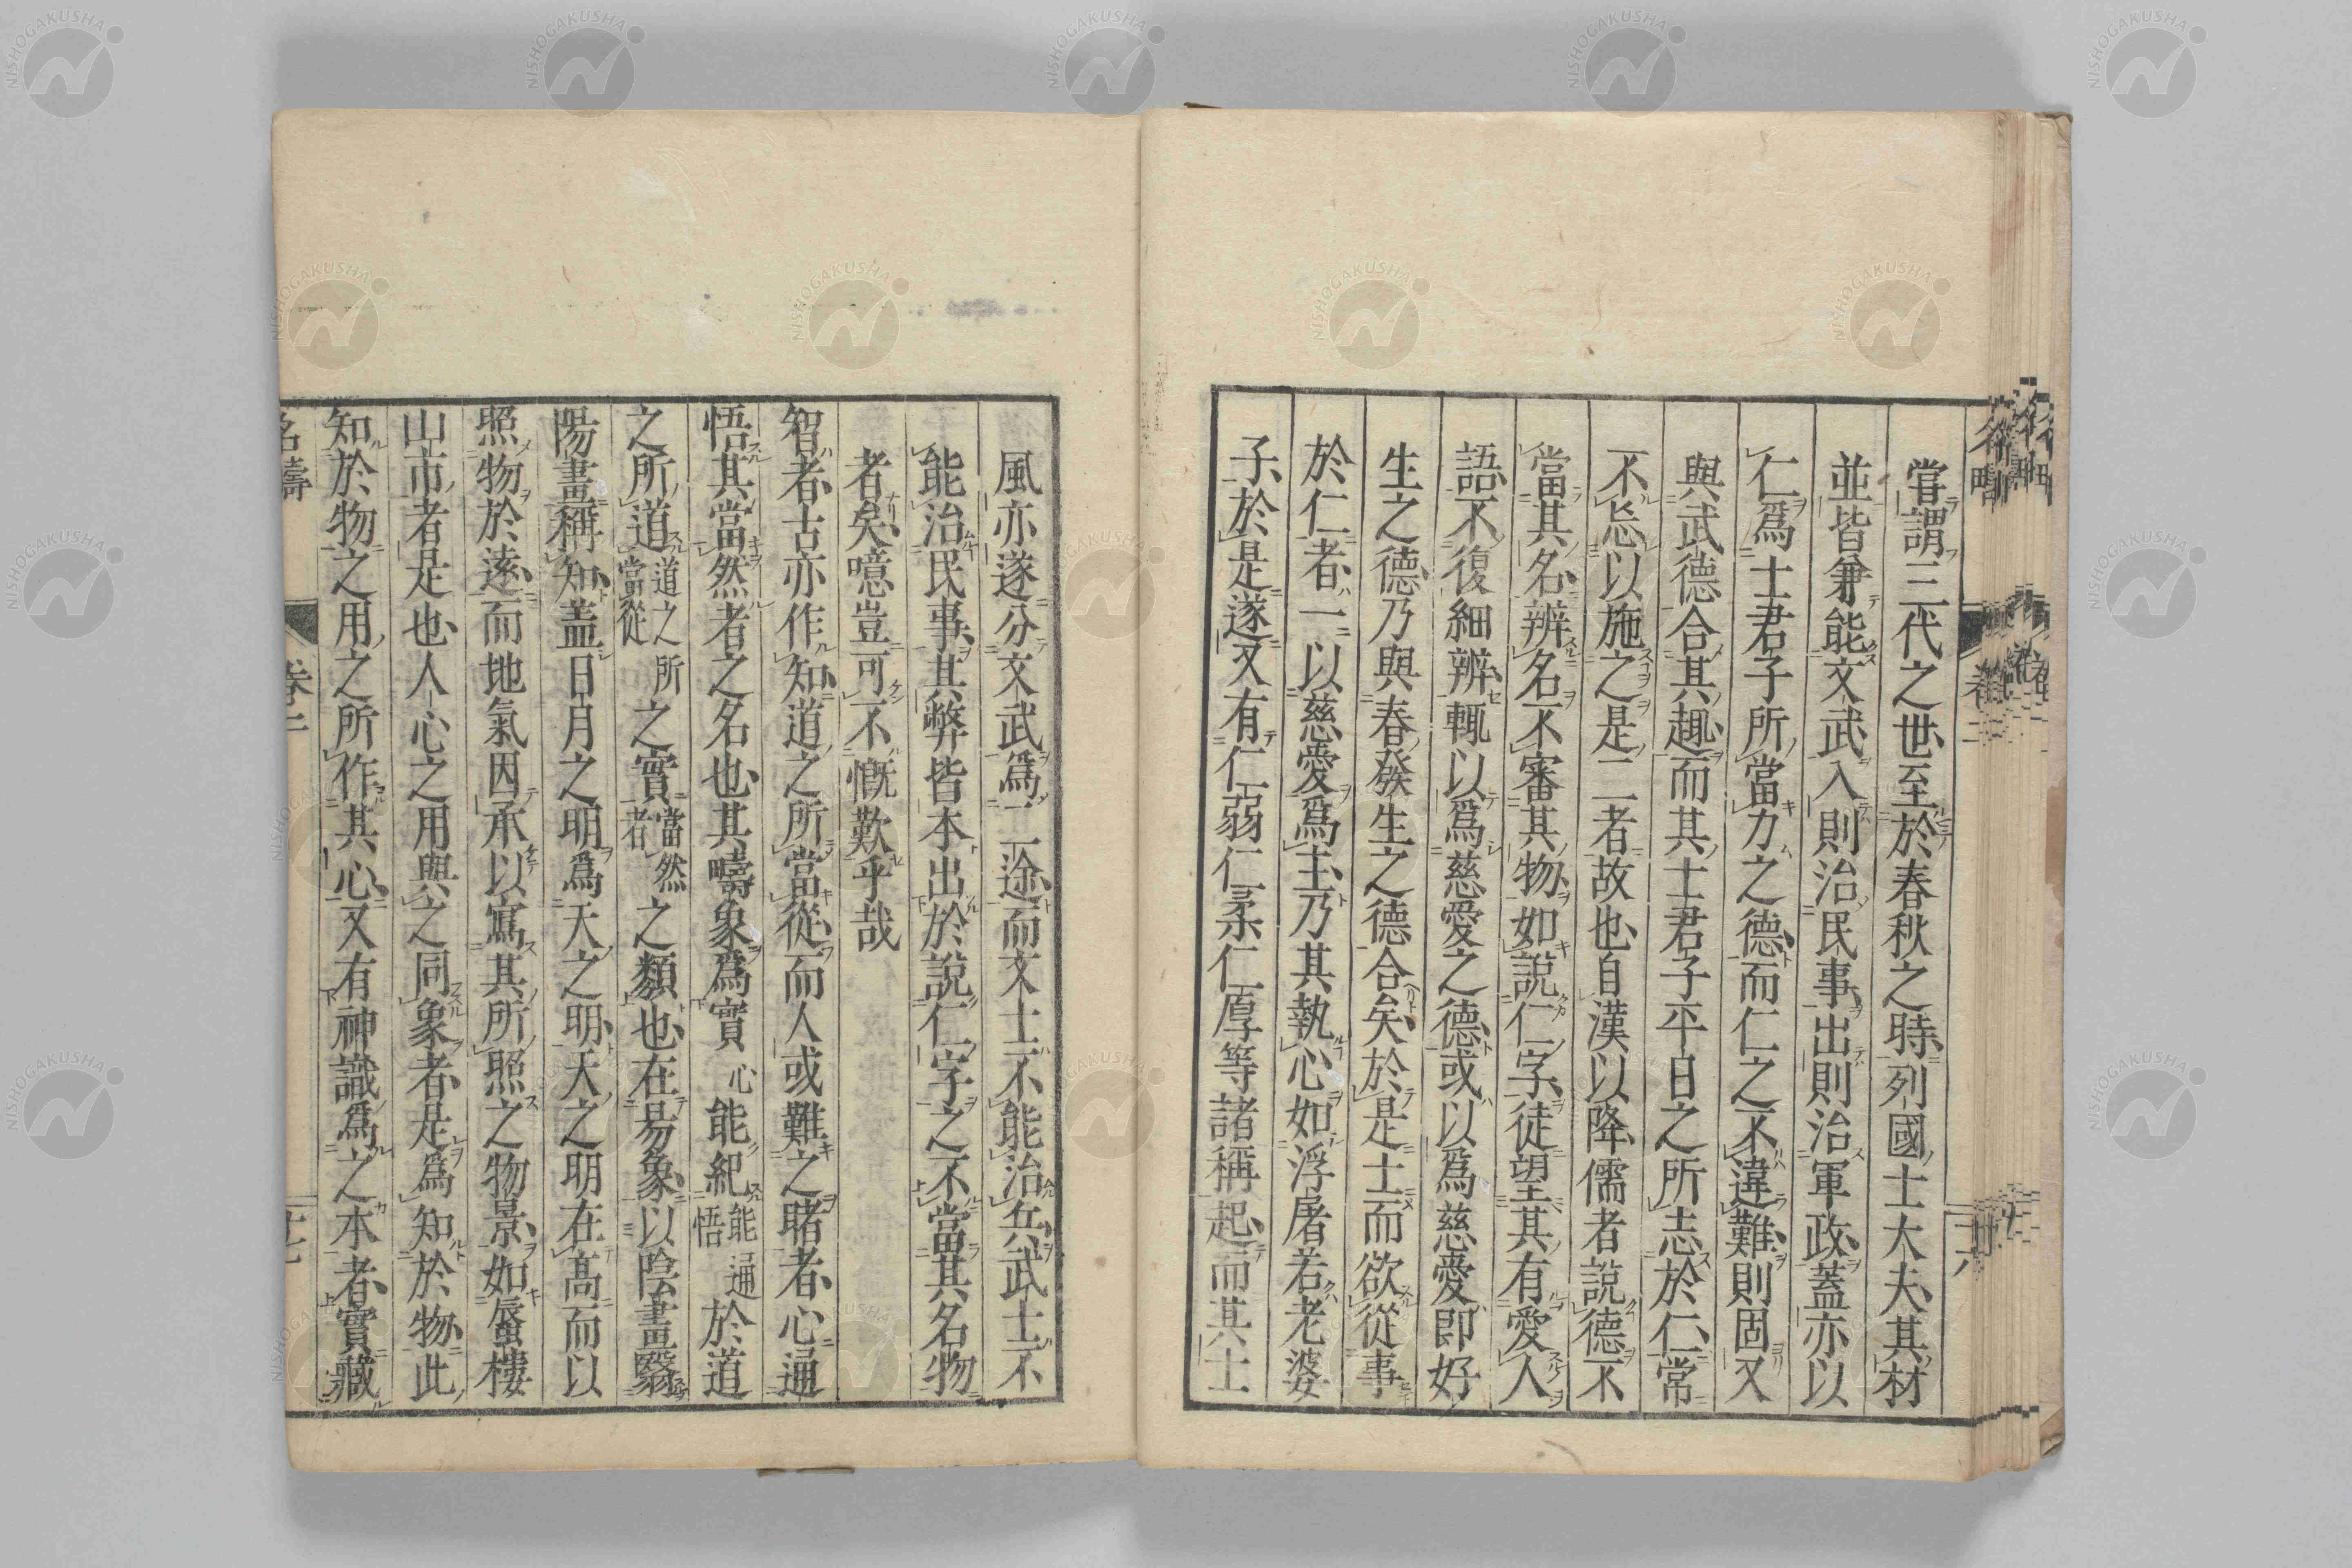 嘗謂三代之世至於春秋之時列國士大夫其材
並皆兼能文武入則治民事出則治軍政蓋亦以
仁爲士君子所當力之德而仁之不違難則固又
與武德合其趣而其士君子平日之所志於仁常
不忘以施之是二者故也自漢以降儒者說德不
當其名辨名不審其物如說仁字徒望其有愛人
語不復細辨輒以爲慈愛之德或以爲慈愛即好
生之德乃與春發生之德合矣於是士而欲從事
於仁者一以慈愛爲主乃其執心如浮屠若老婆
子於是遂又有仁弱仁柔仁厚等諸稱起而其士
風亦遂分文武爲二途而文士不能治兵武士不
能治民事其弊皆本出於說仁字之不當其名物
者矣噫豈可不慨歎乎哉
智者古亦作知道之所當從而人或難之睹者心通
悟其當然者之名也其疇象爲實心能紀能通悟於道
之所道道之所當從之實當然者之類也在易象以陰畫翳
陽畫稱知蓋日月之明爲天之明天之明在高而以
照物於遠而地氣因承以寫其所照之物景如蜃樓
山市者是也人心之用與之同象者是爲知於物此
知於物之用之所作其心又有神識爲之本者實藏
名疇
卷二
十七
NISHOGAKUSHA